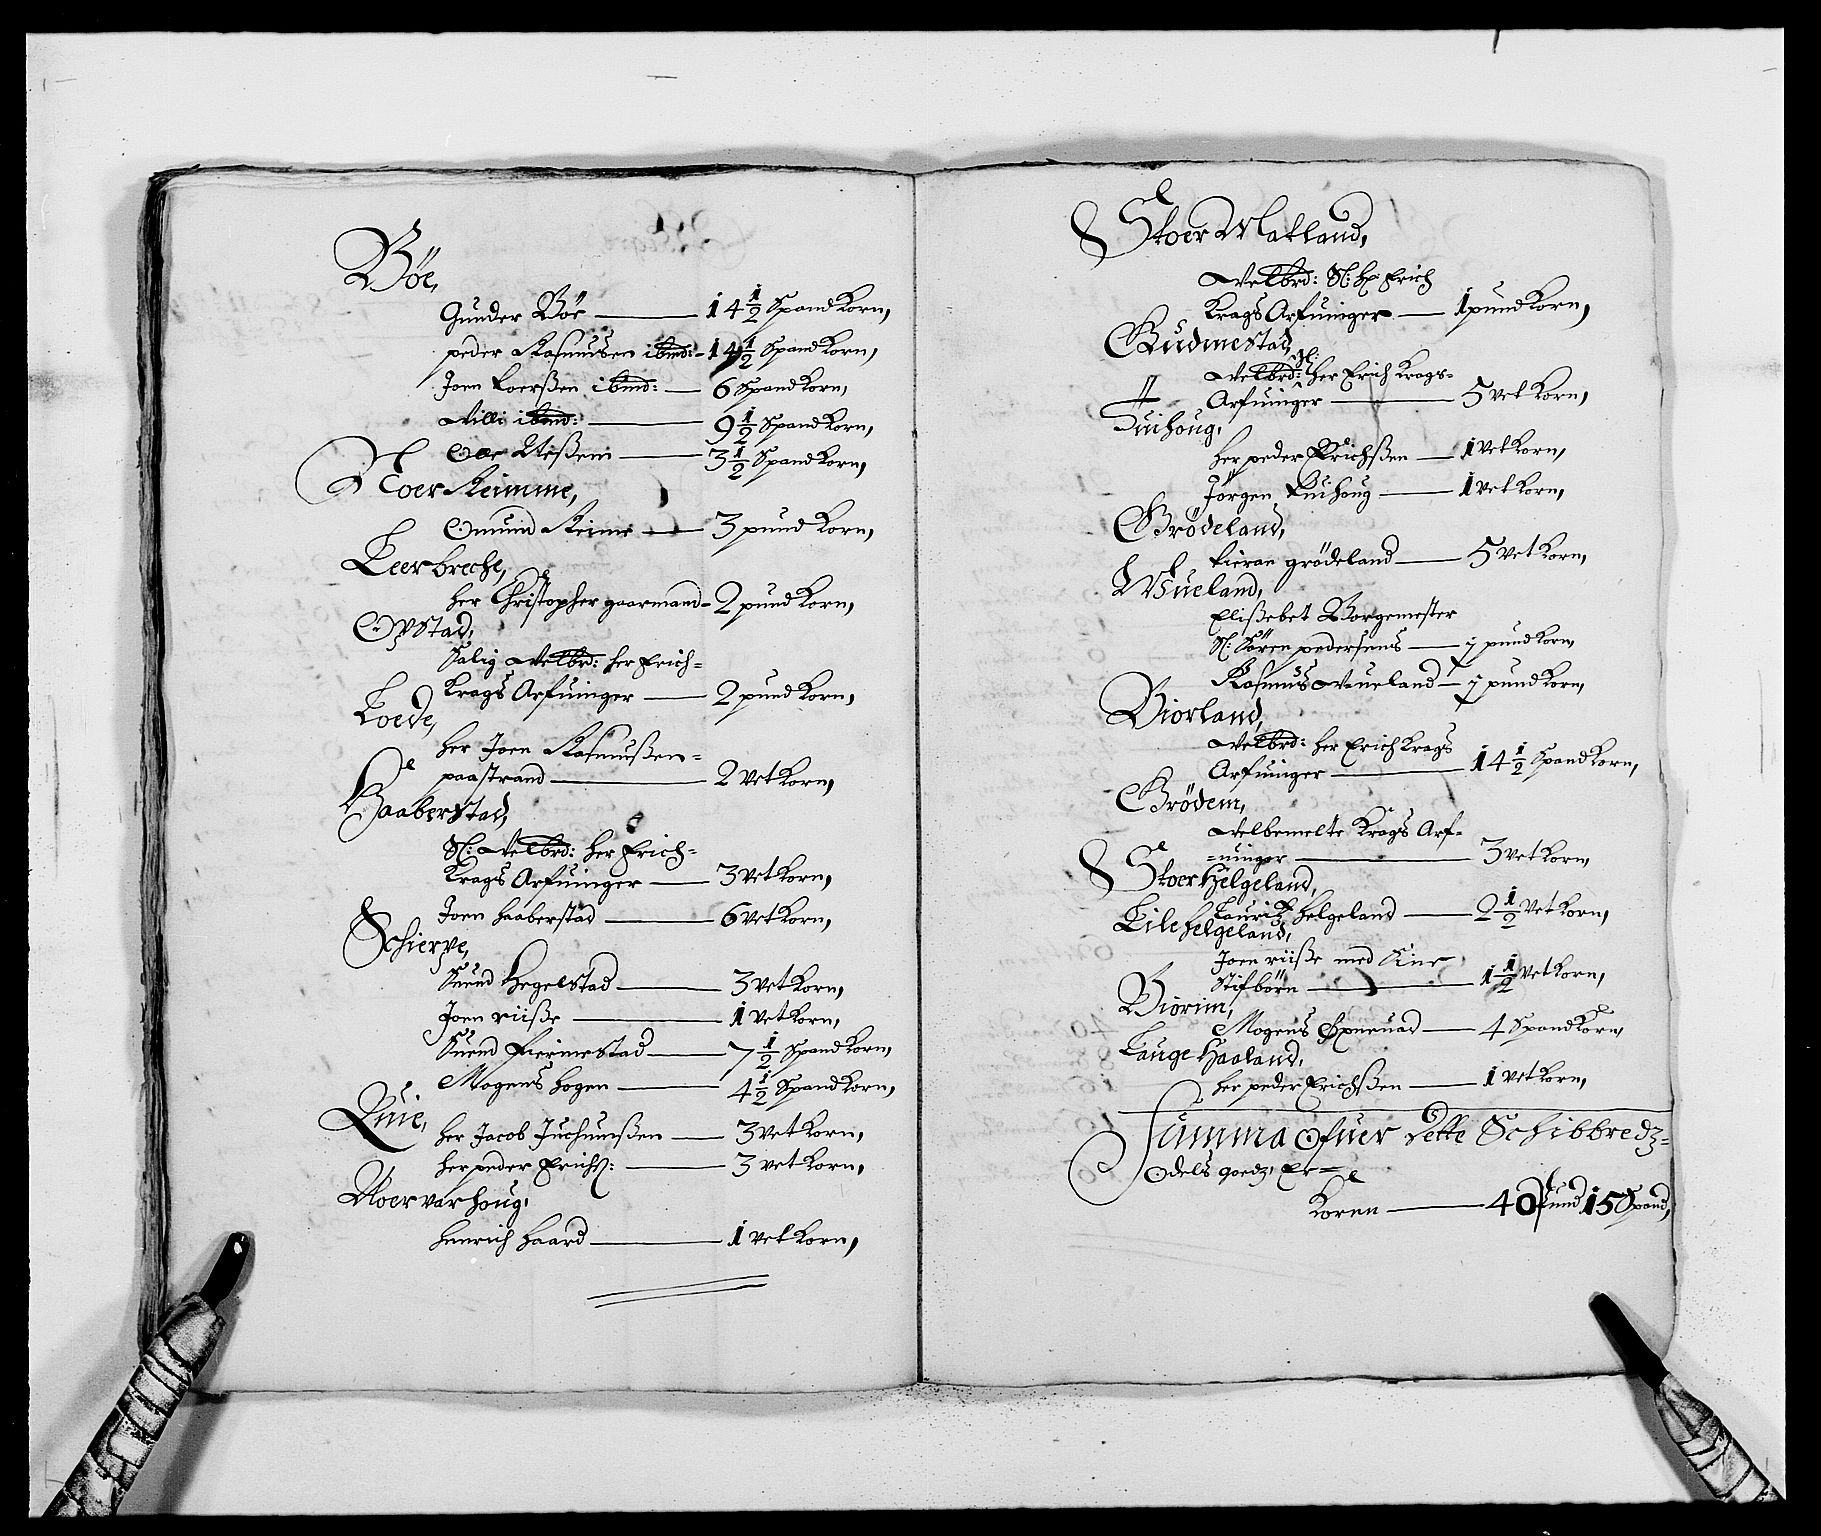 Böe,
Gunder Böe — 14 1/2 Spand Korn,
peder Rasmussen ibmd: - 14 1/2 Spand Korn,
Joen ibmd: — 6 Spand Korn,
Villi ibmd: — 9 1/2 Spand Korn,
Ole — 3 1/2 Spand Korn,
Noer Reimme,
Omund Reime — 3 pund Korn,
Leerbreche,
her Christopher gaarmand - 2 pund Korn,
Opstad,
Salig Velbrd: her Erich=
Krags Arfuinger — 2 pund Korn,
Loede,
her Joen Rasmussen=
paa strand — 2 Vet Korn,
Haaberstad,
Sl: Velbrd: her Erich=
Krags Arfuinger — 3 Vet Korn,
Joen haaberstad — 6 Vet Korn,
Schierpe,
Suend hegelstad — 3 Vet Korn,
Joen riisse — 1 Vet Korn,
Suend fierinestad — 7 1/2 Spand Korn,
Mogens hogen — 4 1/2 Spand Korn,
Quie,
her Jacob Juchumßen — 3 Vet Korn,
her peder Erichß: — 3 Vet Korn,
Noer varhoug,
hinrich haard — 1 Vet Korn,
Stoer Matland,
Velbrd: Sl: Hr: Erich
Krags Arfuinger — 1 pund Korn,
Gudmestad,
Velbrd: Sl: her Erich Krags=
Arfuinger — 5 Vet Korn,
Tuihoug,
her peder Erichßen — 1 Vet Korn,
Jörgen Tuihoug — 1 Vet Korn,
Grödeland,
Tieran grödeland — 5 Vet Korn,
Wueland,
Elißebet Borgemester
Sl: Sören pedersens — j pund Korn,
Rasmus Vueland — j pund Korn,
Biorland,
Velbrd: her Erich Krags
Arfuinger — 14 1/2 Spand Korn,
Grödem,
Velbemelte Krags Arf=
=uinger — 3 Vet Korn,
Stoer Helgeland,
Lauritz helgeland — 2 1/2 Vet Korn,
Lile helgeland,
Joen riiße med Sine
Stifbörn — 1 1/2 Vet Korn,
Biorim,
Mogens — 4 Spand Korn,
Lauge Haaland,
her peder Erichßen — 1 Vet Korn,
Summa Ofuer dette Schibbredz=
Odels goedz, Er=
Koren — 40 pund 15 Spand,